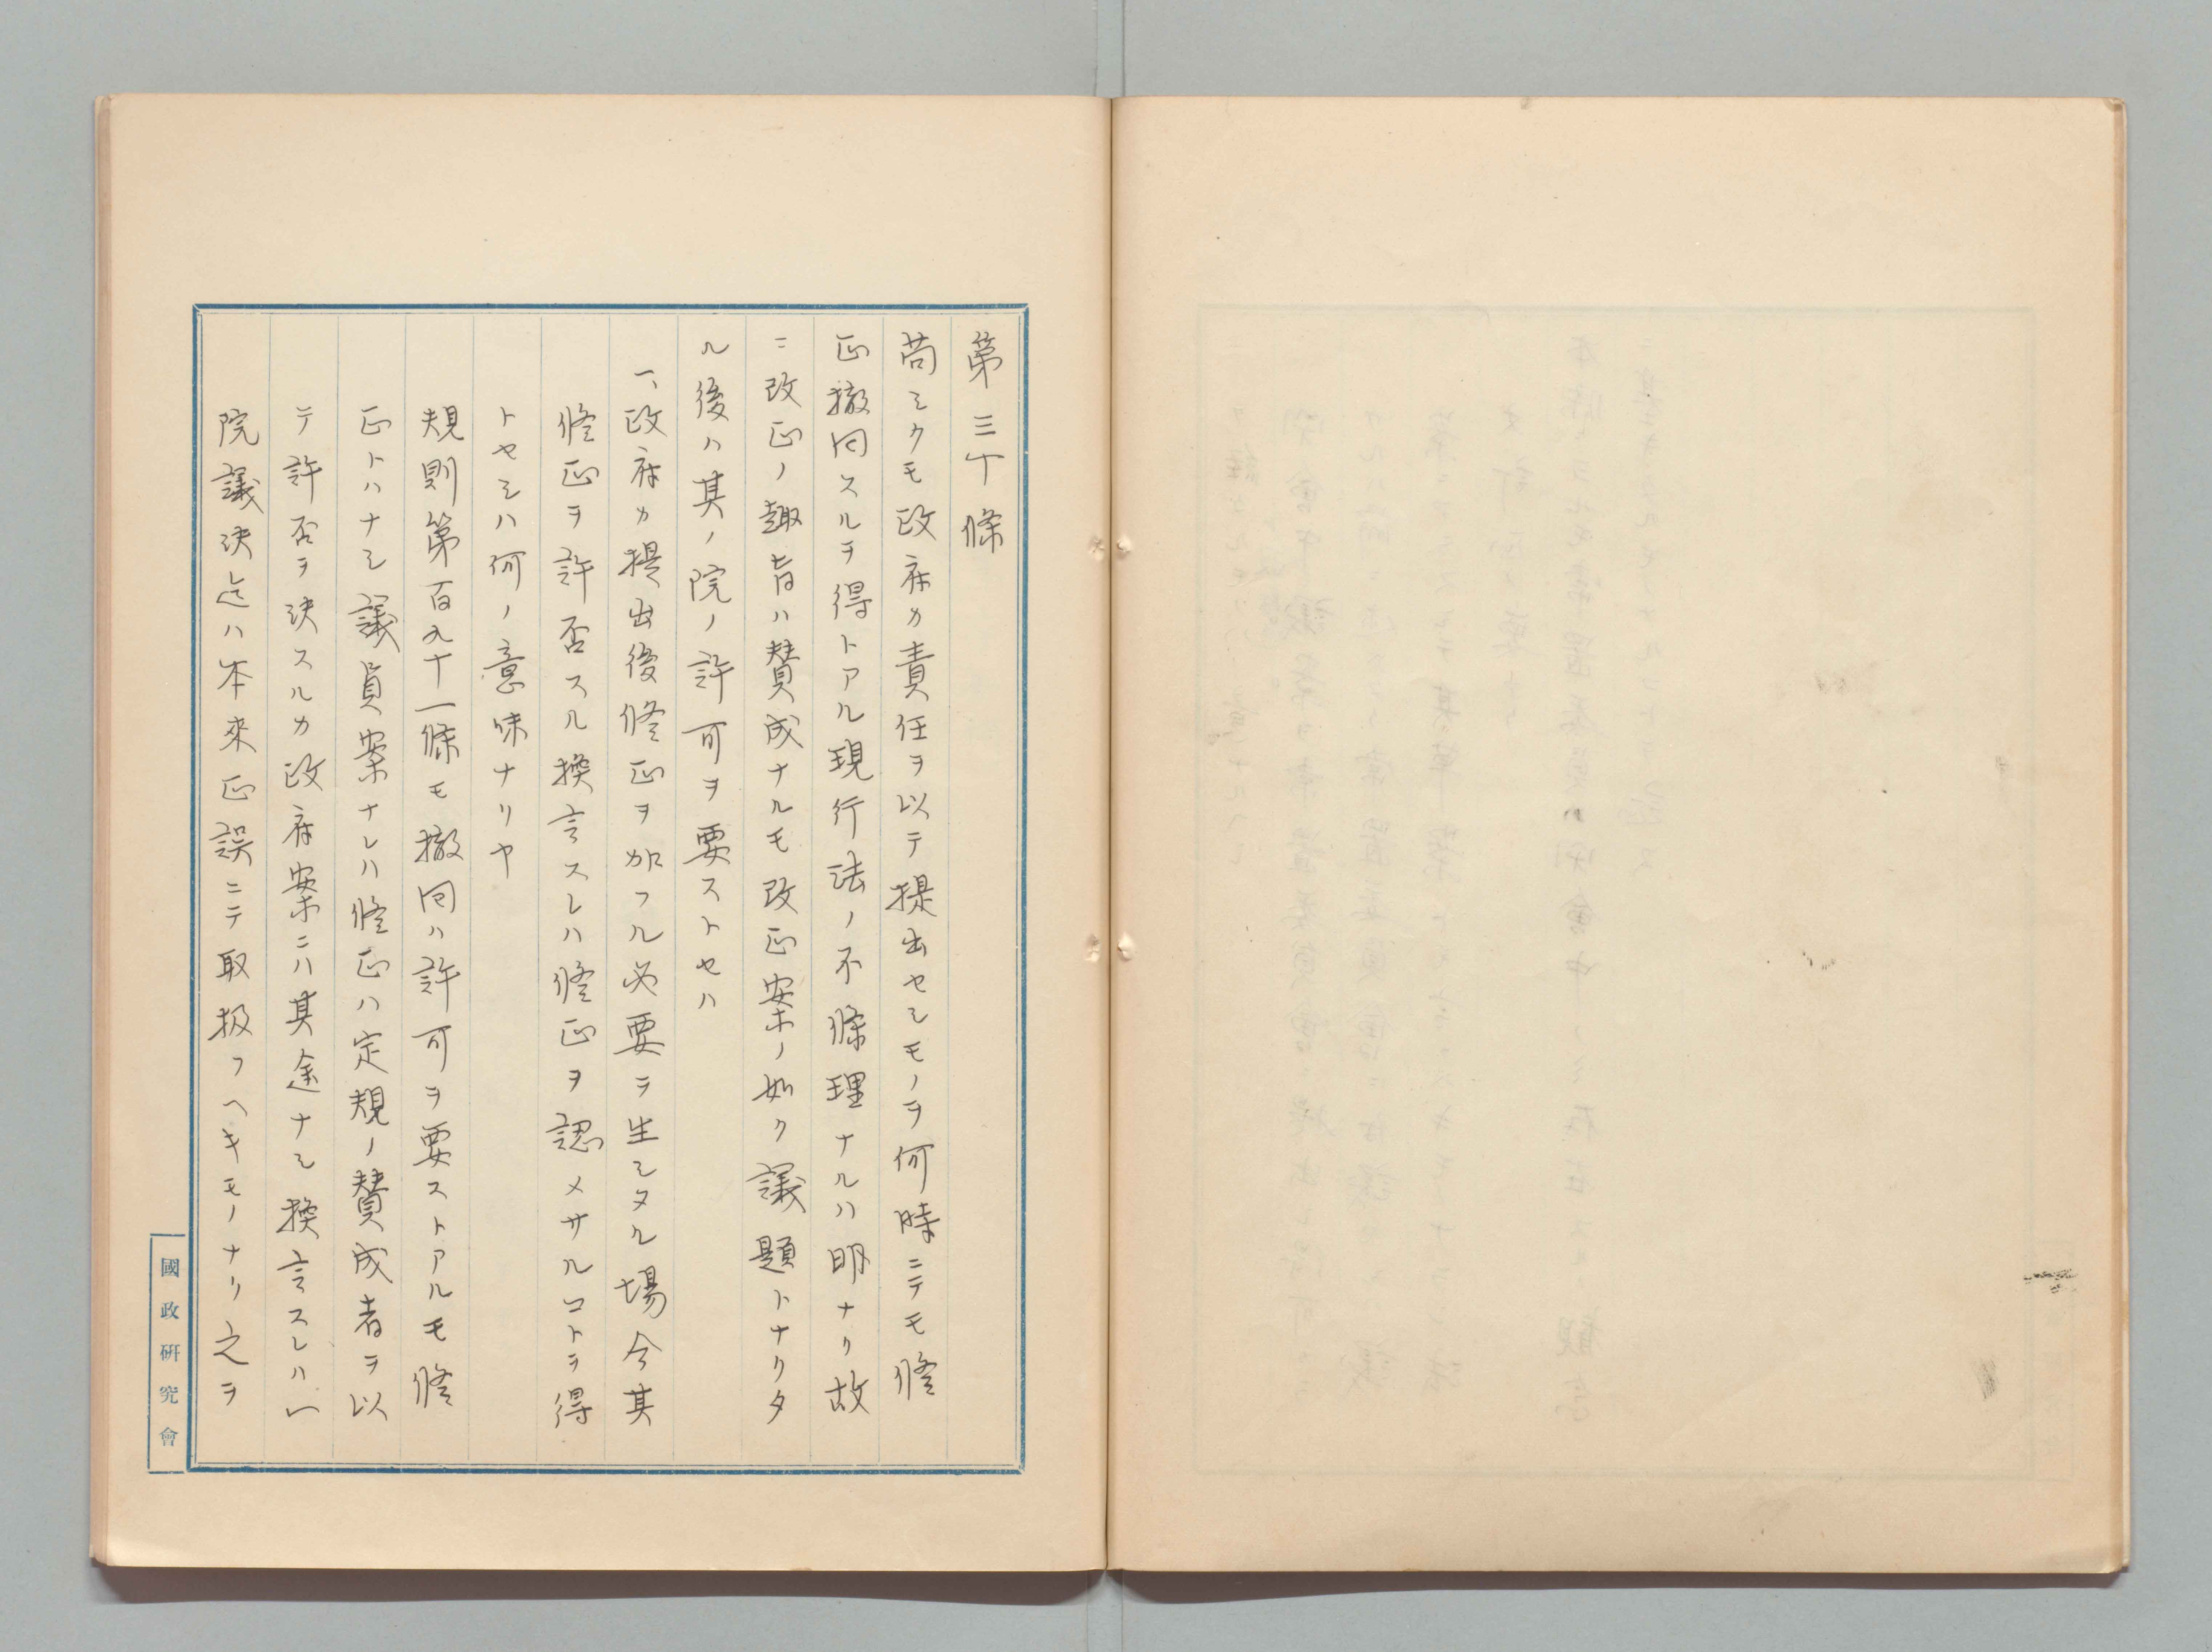 第三十條
苟シクモ政府カ責任ヲ以テ提出セシモノヲ何時ニテモ修
正撤回スルヲ得トアル現行法ノ不條理ナルハ明ナリ故
ニ改正ノ趣旨ハ賛成ナルモ改正案ノ如ク議題トナリタ
ル後ハ其ノ院ノ許可ヲ要ストセハ
一、政府カ提出後修正ヲ加フル必要ヲ生シタル場合其
修正ヲ許否スル換言スレハ修正ヲ認メサルコトヲ得
トセシハ何ノ意味ナリヤ
規則第百九十一條モ撤回ハ許可ヲ要ストアルモ修
正トハナシ議員案ナレハ修正ハ定規ノ賛成者ヲ以
テ許否ヲ決スルカ政府案ニハ其途ナシ換言スレハ一
院議決迄ハ本來正誤ニテ取扱フヘキモノナリ之ヲ
國政研究會